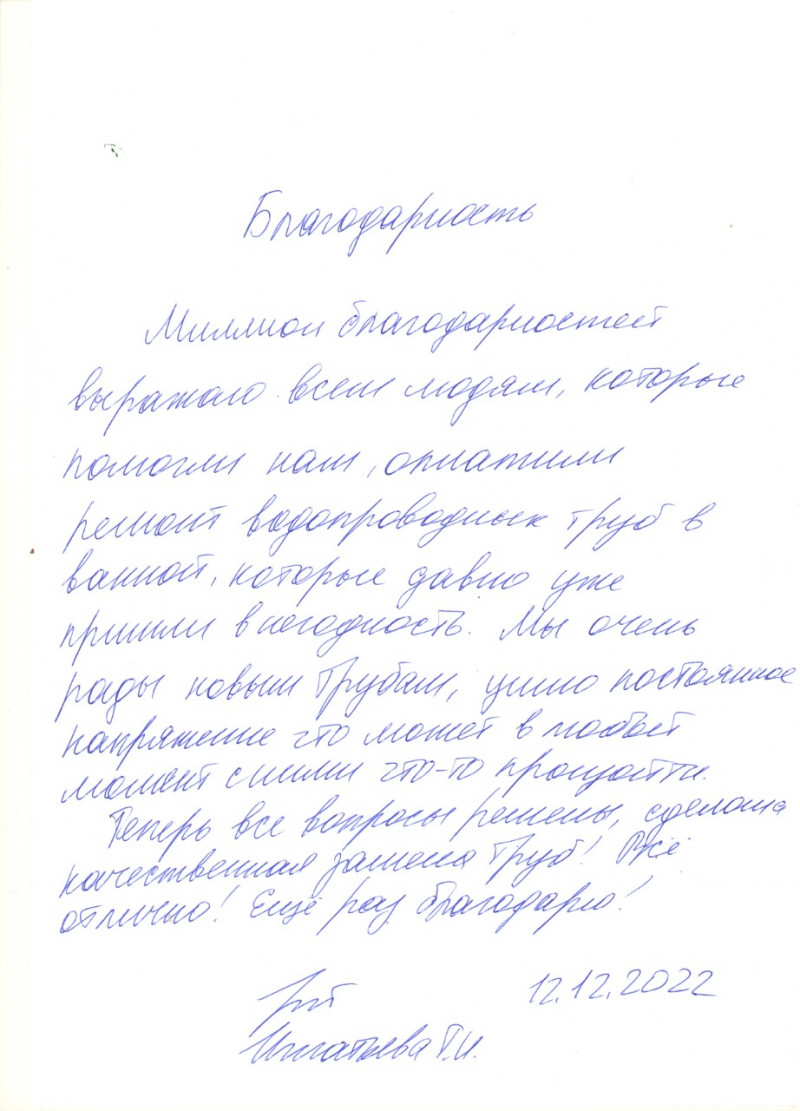 Благодарность
Миллион благодарностей
выражаю всем людям, которые
помогли нам, оплатили
ремонт водопроводных труб в
ванной, которые давно уже
пришли в негодность. Мы очень
рады новым трубам, ушло постоянное
напряжение что может в любой
момент с ними что-то произойти.
Теперь все вопросы решены, сделана
качественная замена труб! Всё
отлично! Ещё раз благодарю!
12.12.2022
Игнатьева Г.И.